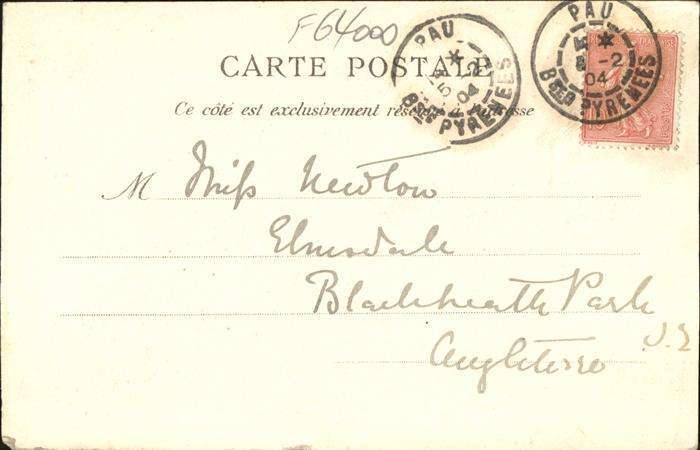 F64000
PAU
5 -2
04
Bses PYRENEES
PAU
-2
04
Bses PYRENEES
CARTE POSTALE
Ce côté est exclusivement réservé à l'adresse
M Miss Newton
Elmsdale
Blackheath Park
S.E
Angleterre